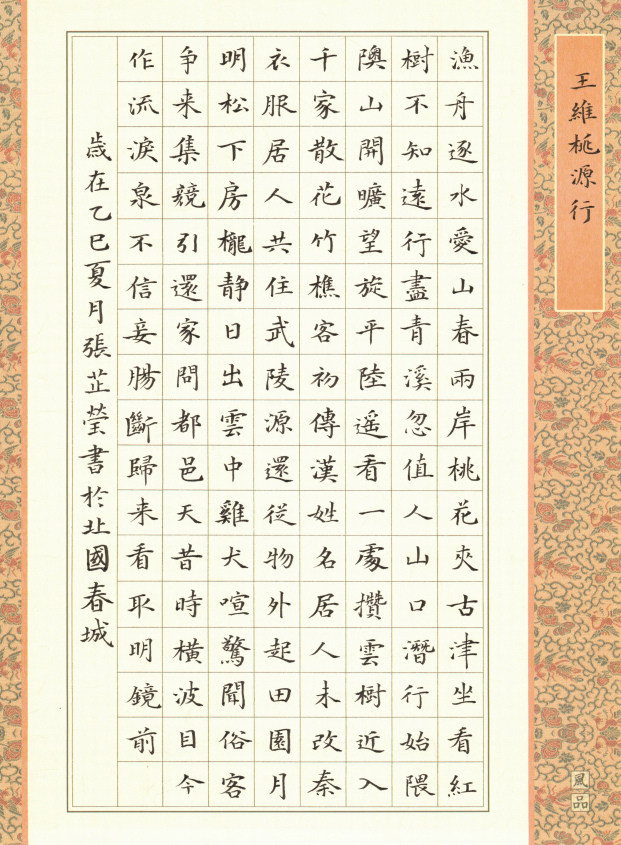 王維桃源行
漁舟逐水愛山春兩岸桃花夾古津坐看紅
樹不知遠行盡青溪忽值人山口潛行始隈
隩山開曠望旋平陸遥看一處攢雲樹近入
千家散花竹樵客初傳漢姓名居人未改秦
衣服居人共住武陵源還從物外起田園月
明松下房櫳静日出雲中雞犬喧驚聞俗客
争来集競引還家問都邑天昔時横波目今
作流淚泉不信妾腸斷歸来看取明鏡前
歲在乙巳夏月張芷瑩書於北國春城
風品